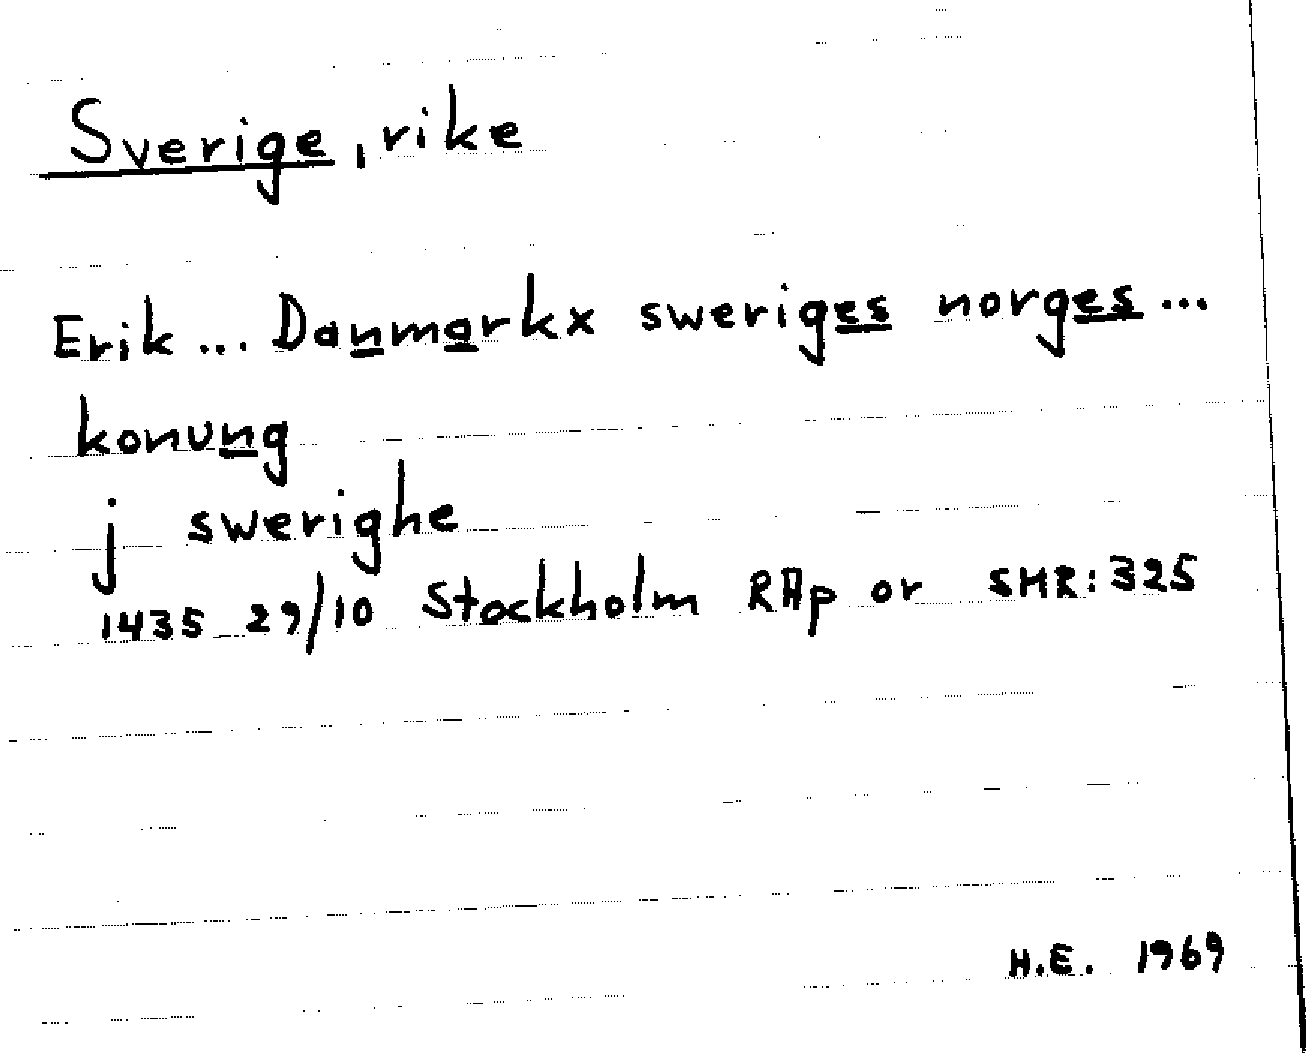 Sverige, rike
Erik... Danmarkx sweriges norges...
konung
j swerighe
1435 29/10 Stockholm RAp or SMR:325
H.E. 1969